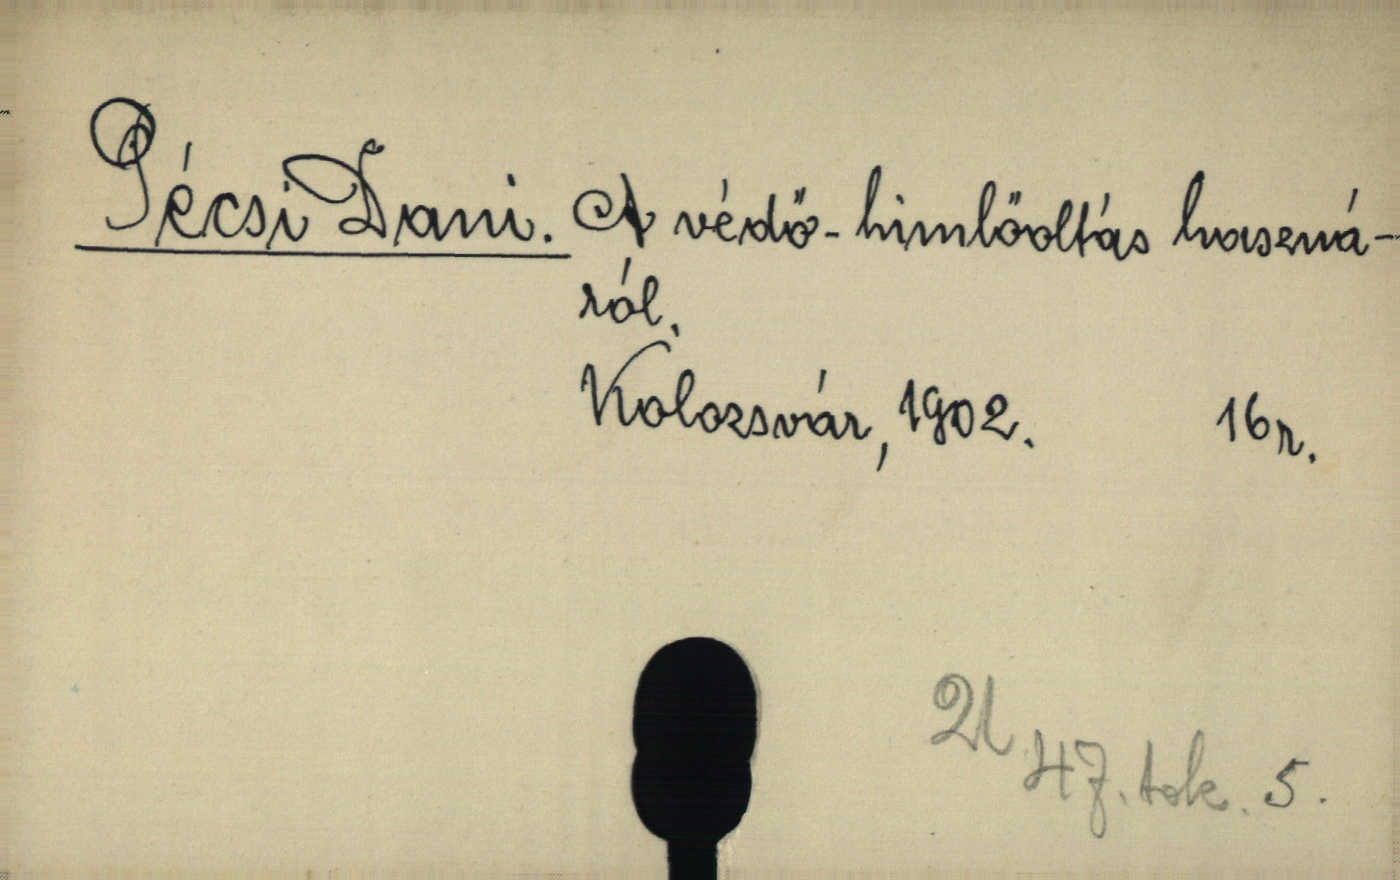 Pécsi Dani. A védő-himlőoltás haszná-
ról.
Kolozsvár, 1902. 16r.
U
47. tok. 5.